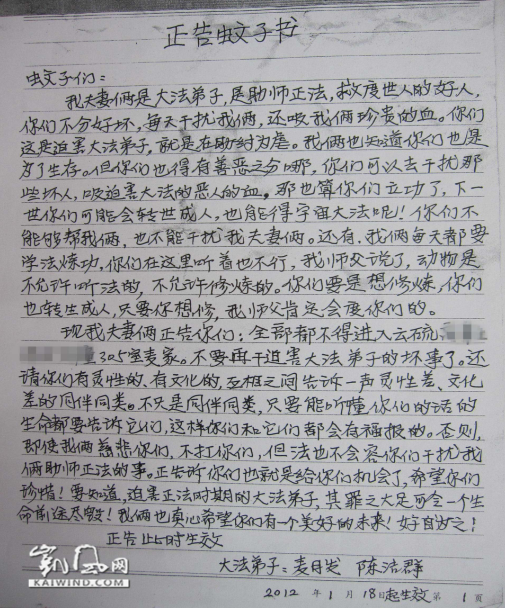 正告蚊子书
蚊子们：
我夫妻俩是大法弟子，是助师正法，救度世人的好人，
你们不分好坏，每天干扰我俩，还吸我俩珍贵的血。你们
这是迫害大法弟子，就是在助纣为虐。我俩也知道你们也是
为了生存。但你们也得有善恶之分哪，你们可以去干扰那
些坏人，吸迫害大法的恶人的血。那也算你们立功了，下一
世你们可能会转世成人，也能得宇宙大法呢！你们不
能够帮我俩，也不能干扰我夫妻俩。还有，我俩每天都要
学法炼功，你们在这里听着也不行，我师父说了，动物是
不允许听法的，不允许修炼的。你们要是想修炼，你们
也转生成人，只要你想修，我师父肯定会度你们的。
现我夫妻俩正告你们：全部都不得进入云硫
305室麦家。不要再干迫害大法弟子的坏事了。还
请你们有灵性的，有文化的，互相之间告诉一声灵性差、文化
差的同伴同类。不只是同伴同类，只要能听懂你们的话的
生命都要告诉它们，这样你们和它们都会有福报的。否则，
即使我俩慈悲你们，不打你们，但法也不会容你们干扰我
俩助师正法的事。正告你们也就是给你们机会了，希望你们
珍惜！要知道，迫害正法时期的大法弟子，其罪之大足可令一个生
命前途尽毁！我俩也真心希望你们有一个美好的未来！好自为之！
正告此时生效
大法弟子：麦日发 陈洁群
2012 年 1 月 18日起生效 第 1 页
凯风网
KAIWIND.COM